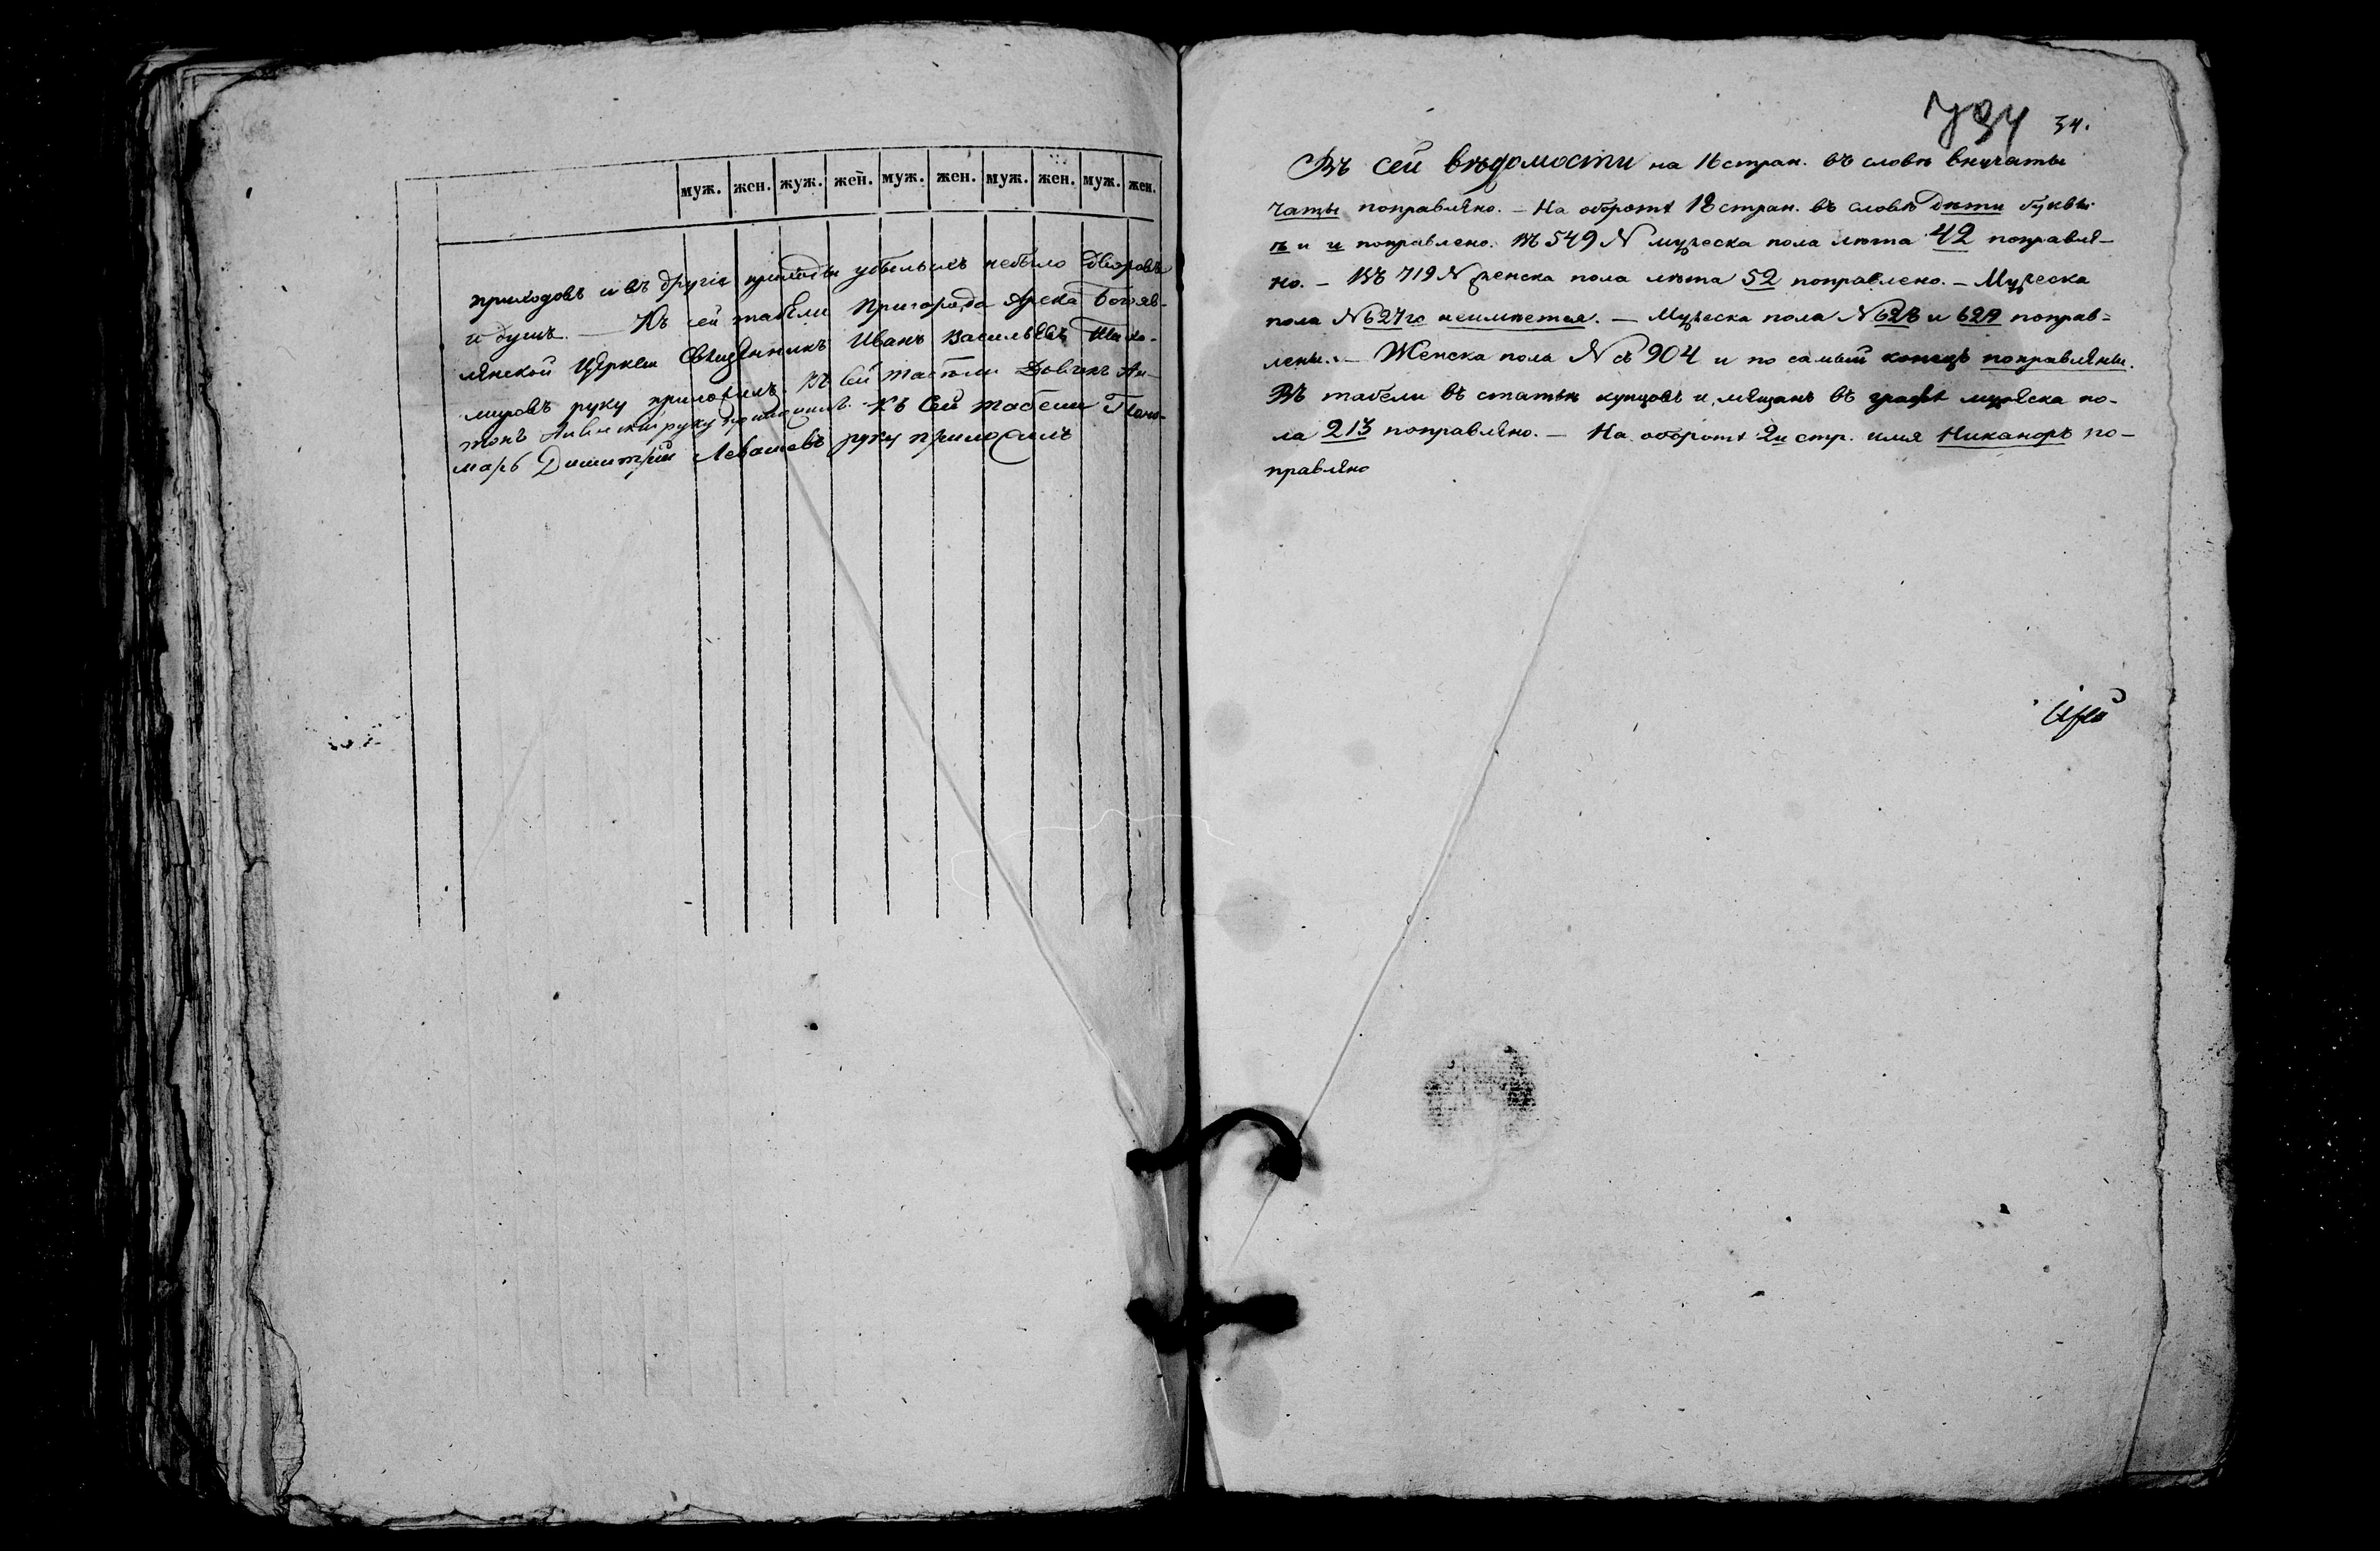 муж. жен. жуж. жен. муж. жен. муж. жен. муж. жен.
приходовъ и въ другіе приходы убылыхъ небыло дворовъ
и душъ. — Къ сей табели Пригорода Арска Богояв-
ленской Церкви Священникъ Иванъ Васильевъ
мировъ руку приложилъ. Къ сей табели Дьячекъ Ан-
тонъ руку приложилъ. Къ сей табели Поно-
марь Димитрій Левашевъ руку приложилъ
734 34.
Въ сей вѣдомости на 16 стран. въ словѣ внучаты
чаты поправлено. — На оборотѣ 18 стран. въ словѣ дѣти буквы
ѣ и и поправлено. Въ 549 N мужеска пола лѣта 42 поправле-
но. — Въ 719 N женска пола лѣта 52 поправлено. — Мужеска
пола N 627го неимѣется. — Мужеска пола N 628 и 629 поправ-
лены. — Женска пола N съ 904 и по самый конецъ поправлены.
Въ табели въ статьѣ купцовъ и мещанъ въ графѣ мужеска по-
ла 213 поправлено. — На оборотѣ 2й стр. имя Никаноръ по-
правлено